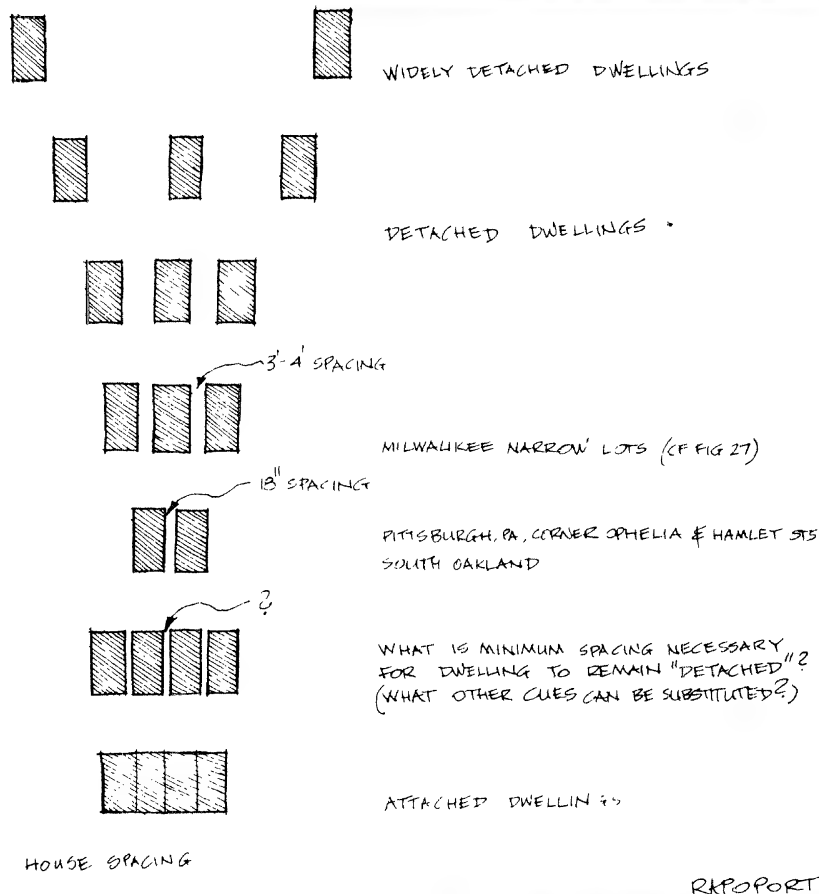 WIDELY DETACHED DWELLINGS
DETACHED DWELLINGS
3'-4' SPACING
MILWAUKEE NARROW LOTS (CF FIG 27)
18" SPACING
PITTSBURGH, PA, CORNER OPHELIA & HAMLET STS
SOUTH OAKLAND
?
WHAT IS MINIMUM SPACING NECESSARY
FOR DWELLING TO REMAIN "DETACHED"?
(WHAT OTHER CUES CAN BE SUBSTITUTED?)
ATTACHED DWELLINGS
HOUSE SPACING
RAPOPORT